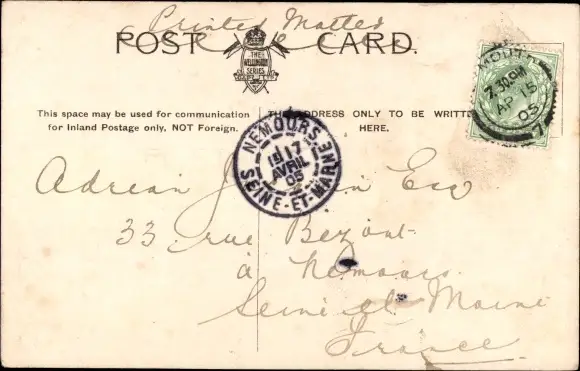 Printed Matter
POST CARD.
THE
WELLINGTON
SERIES
MOUTH
7.30PM
AP 15
05
This space may be used for communication
for Inland Postage only, NOT Foreign.
THE ADDRESS ONLY TO BE WRITTEN
HERE.
NEMOURS
19 17
AVRIL
05
SEINE-ET-MARNE
Adrian Esq
33 rue Bezout
à Nemours
Seine et Marne
France